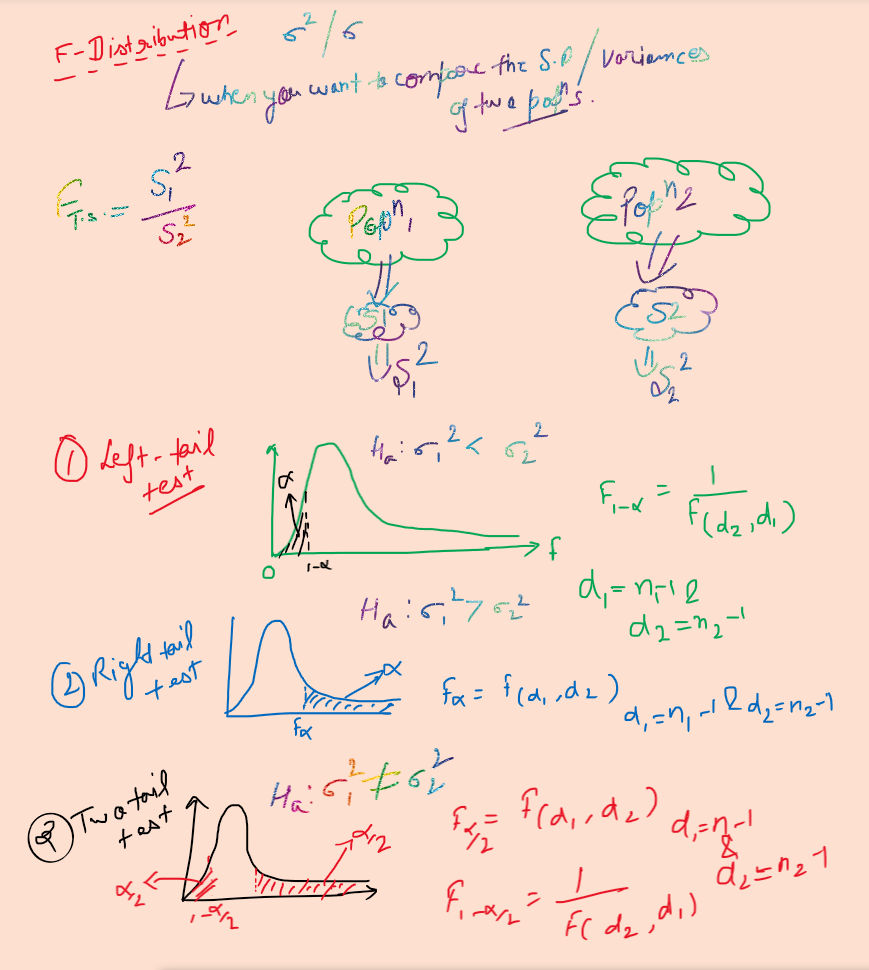 F-Distribution σ²/σ
↳ when you want to compare the S.D/variances
of two popⁿs.
F_T.S. = S₁²/S₂²
Popⁿ₁
Popⁿ2
S1
S2
S₁²
S₂²
① Left-tail
test
Hₐ: σ₁² < σ₂²
α
F₁₋α = 1/F(d₂,d₁)
f
0
1-α
d₁ = n₁-1 &
d₂ = n₂-1
② Right tail
test
Hₐ: σ₁² > σ₂²
α
fα
fα = f(d₁,d₂)
d₁ = n₁-1 & d₂ = n₂-1
③ Two tail
test
Hₐ: σ₁² ≠ σ₂²
α/2
α/2
1-α/2
Fα/2 = f(d₁,d₂) d₁ = n-1
&
d₂ = n₂-1
F₁₋α/2 = 1/F(d₂,d₁)